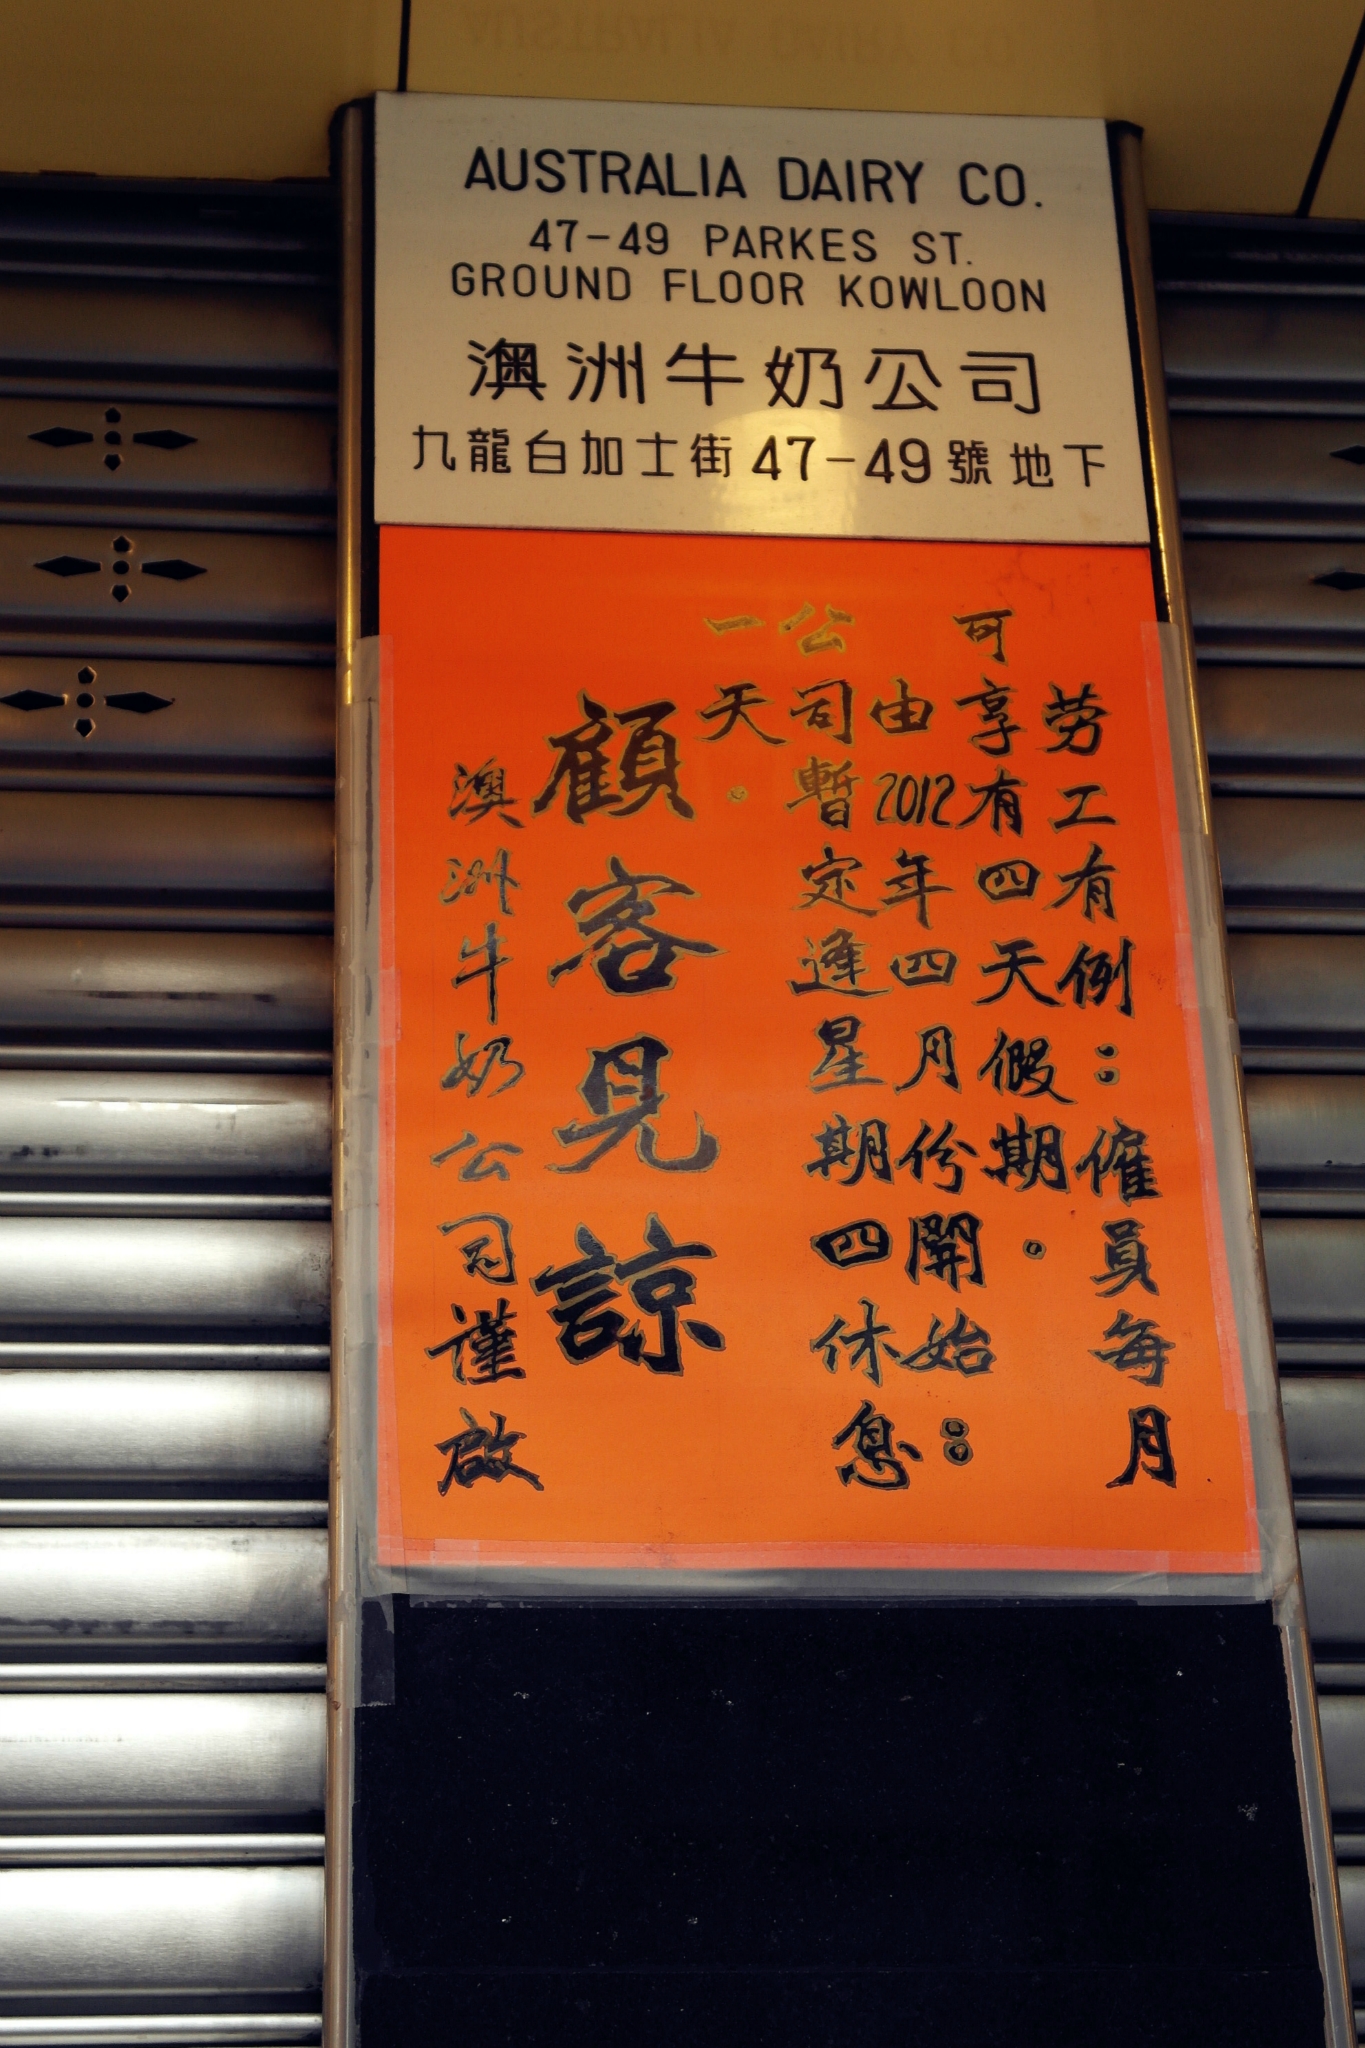 AUSTRALIA DAIRY CO.
47-49 PARKES ST.
GROUND FLOOR KOWLOON
澳洲牛奶公司
九龍白加士街47-49號地下
劳工有例：僱員每月
可享有四天假期。
由2012年四月份開始：
公司暫定逢星期四休息
一天。
顧客見諒
澳洲牛奶公司謹啟